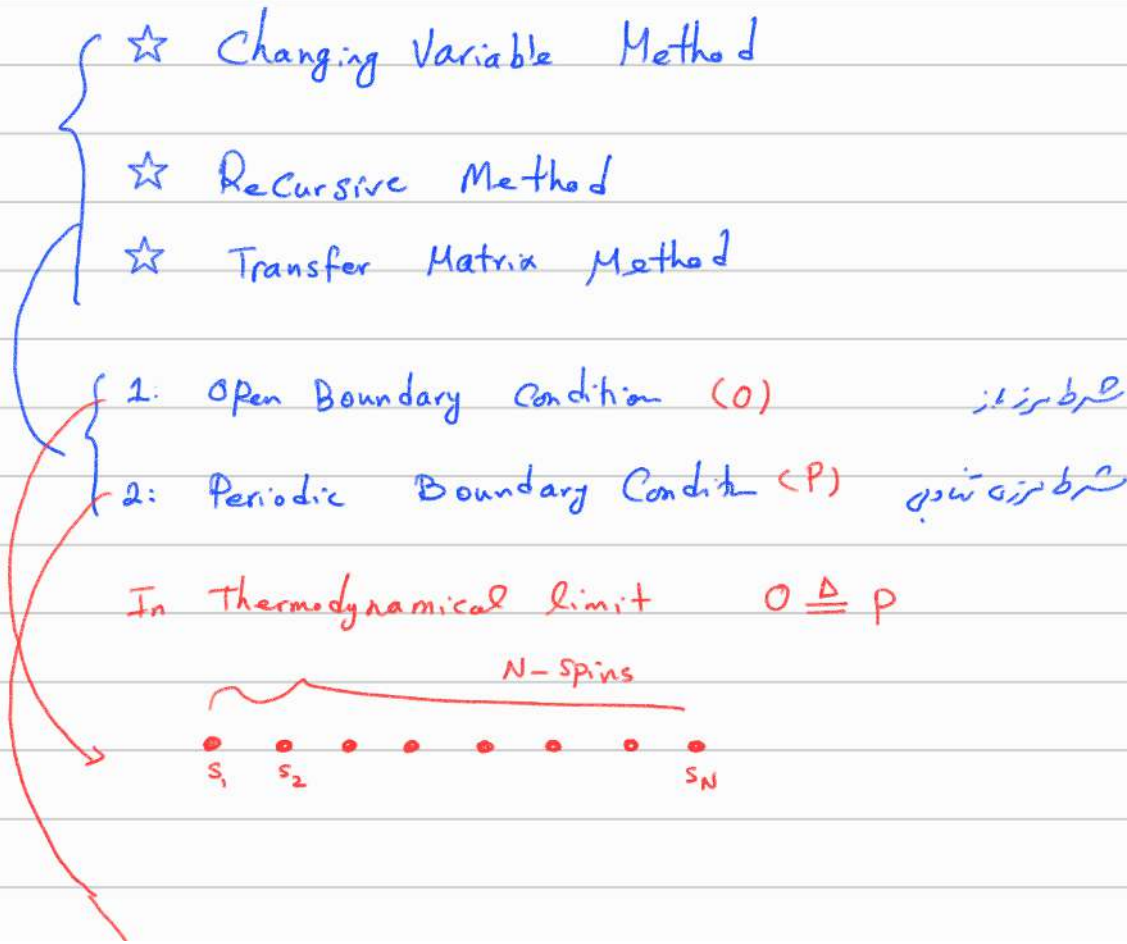 ☆ Changing Variable Method
☆ Recursive Method
☆ Transfer Matrix Method
1: Open Boundary Condition (O) شرط مرز باز
2: Periodic Boundary Condit (P) شرط مرزی تناوبی
In Thermodynamical limit O ≜ P
N-spins
S₁ S₂ S_N